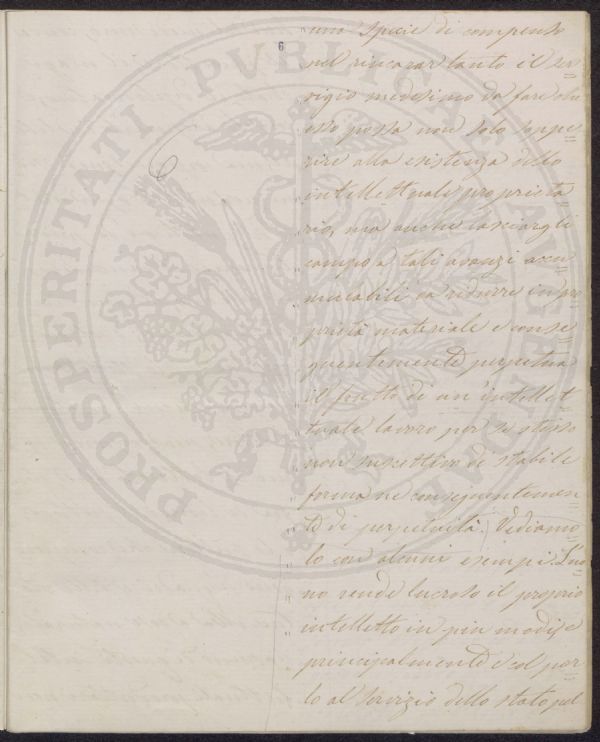 6
6
PROSPERITATI PUBLICAE AUGENDAE
una specie di compenso
nel rincarar tanto il ser=
vigio medesimo da fare che
esso possa non solo soppe=
rire alla esistenza dello
intellettuale proprieta=
rio, ma anche lasciargli
campo a tali avanzi accu=
mulabili da ridurre in pro=
prietà materiale e conse=
guentemente perpetua
il frutto di un'intellet=
tuale lavoro per se stesso
non suscettivo di stabile
forma ne conseguentemen=
te di perpetuità. Vediamo=
lo con alcuni esempi. L'uo=
mo rende lucroso il proprio
intelletto in più modi, e
principalmente col por=
lo al servizio dello stato pel